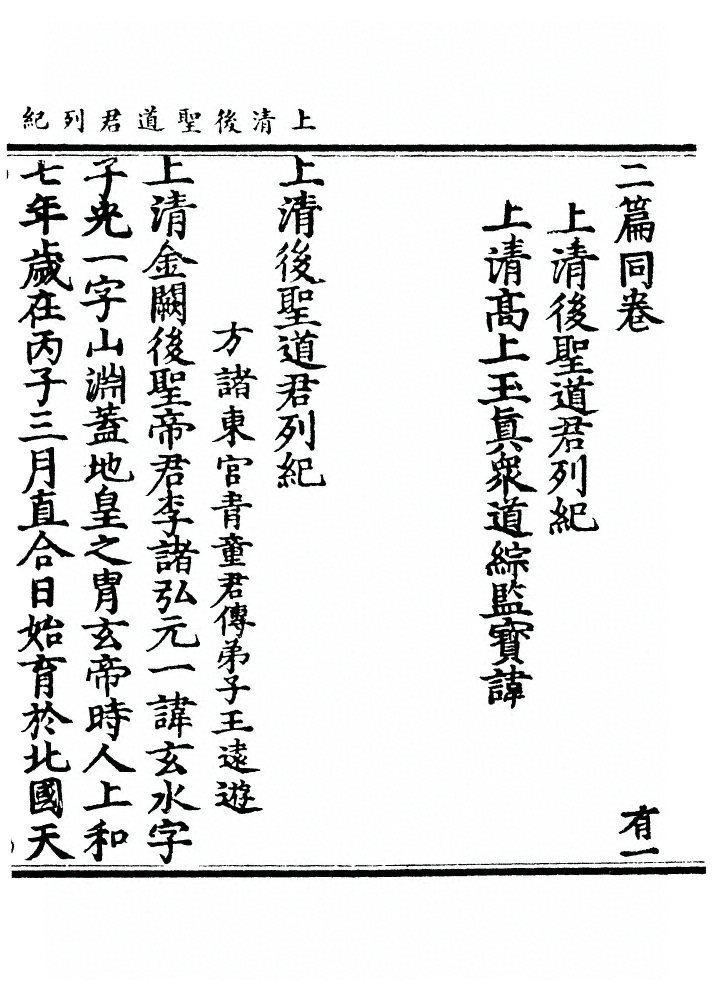 上清後聖道君列紀
二篇同卷 有一
上清後聖道君列紀
上清高上玉眞衆道綜監寳諱
上清後聖道君列紀
方諸東宮青童君傳弟子王遠遊
上清金闕後聖帝君李諸弘元一諱玄水字
子光一字山淵蓋地皇之胄玄帝時人上和
七年歲在丙子三月直合日始育於北國天